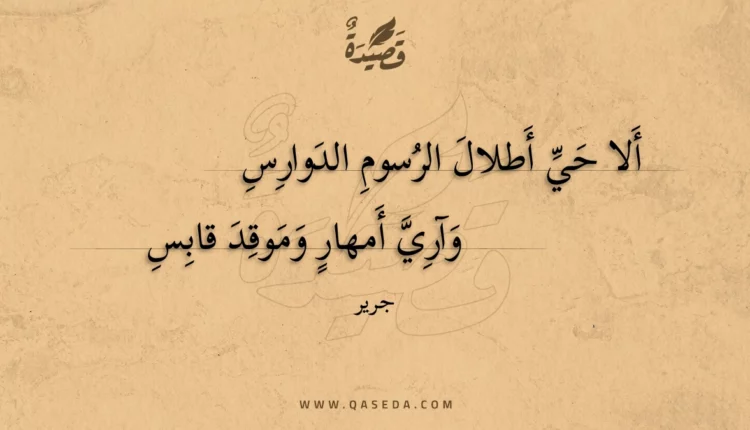 قَصِيْدَةٌ
أَلا حَيِّ أَطلالَ الرُسومِ الدَوارِسِ
وَآرِيَّ أَمهارٍ وَمَوقِدَ قابِسِ
جرير
WWW.QASEDA.COM